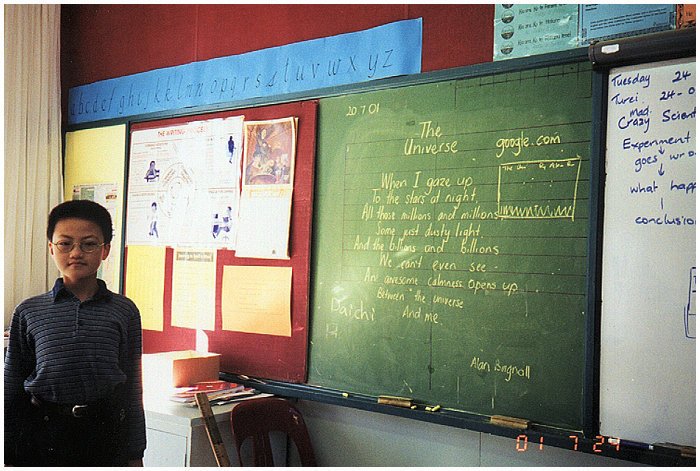 abcdefghijklmnopqrstuvwxyz
THE WRITING
20.7.01
The
Universe
google.com
When I gaze up
To the stars at night
All those millions and millions
Some just dusty light
And the billions and billions
We can't even see
An awesome calmness opens up
Between the universe
And me.
Daichi
Alan Bagnall
Tuesday 24
Turei 24-0
mad
Crazy Scient
Experiment
goes wro
what happ
conclusion
01 7 24